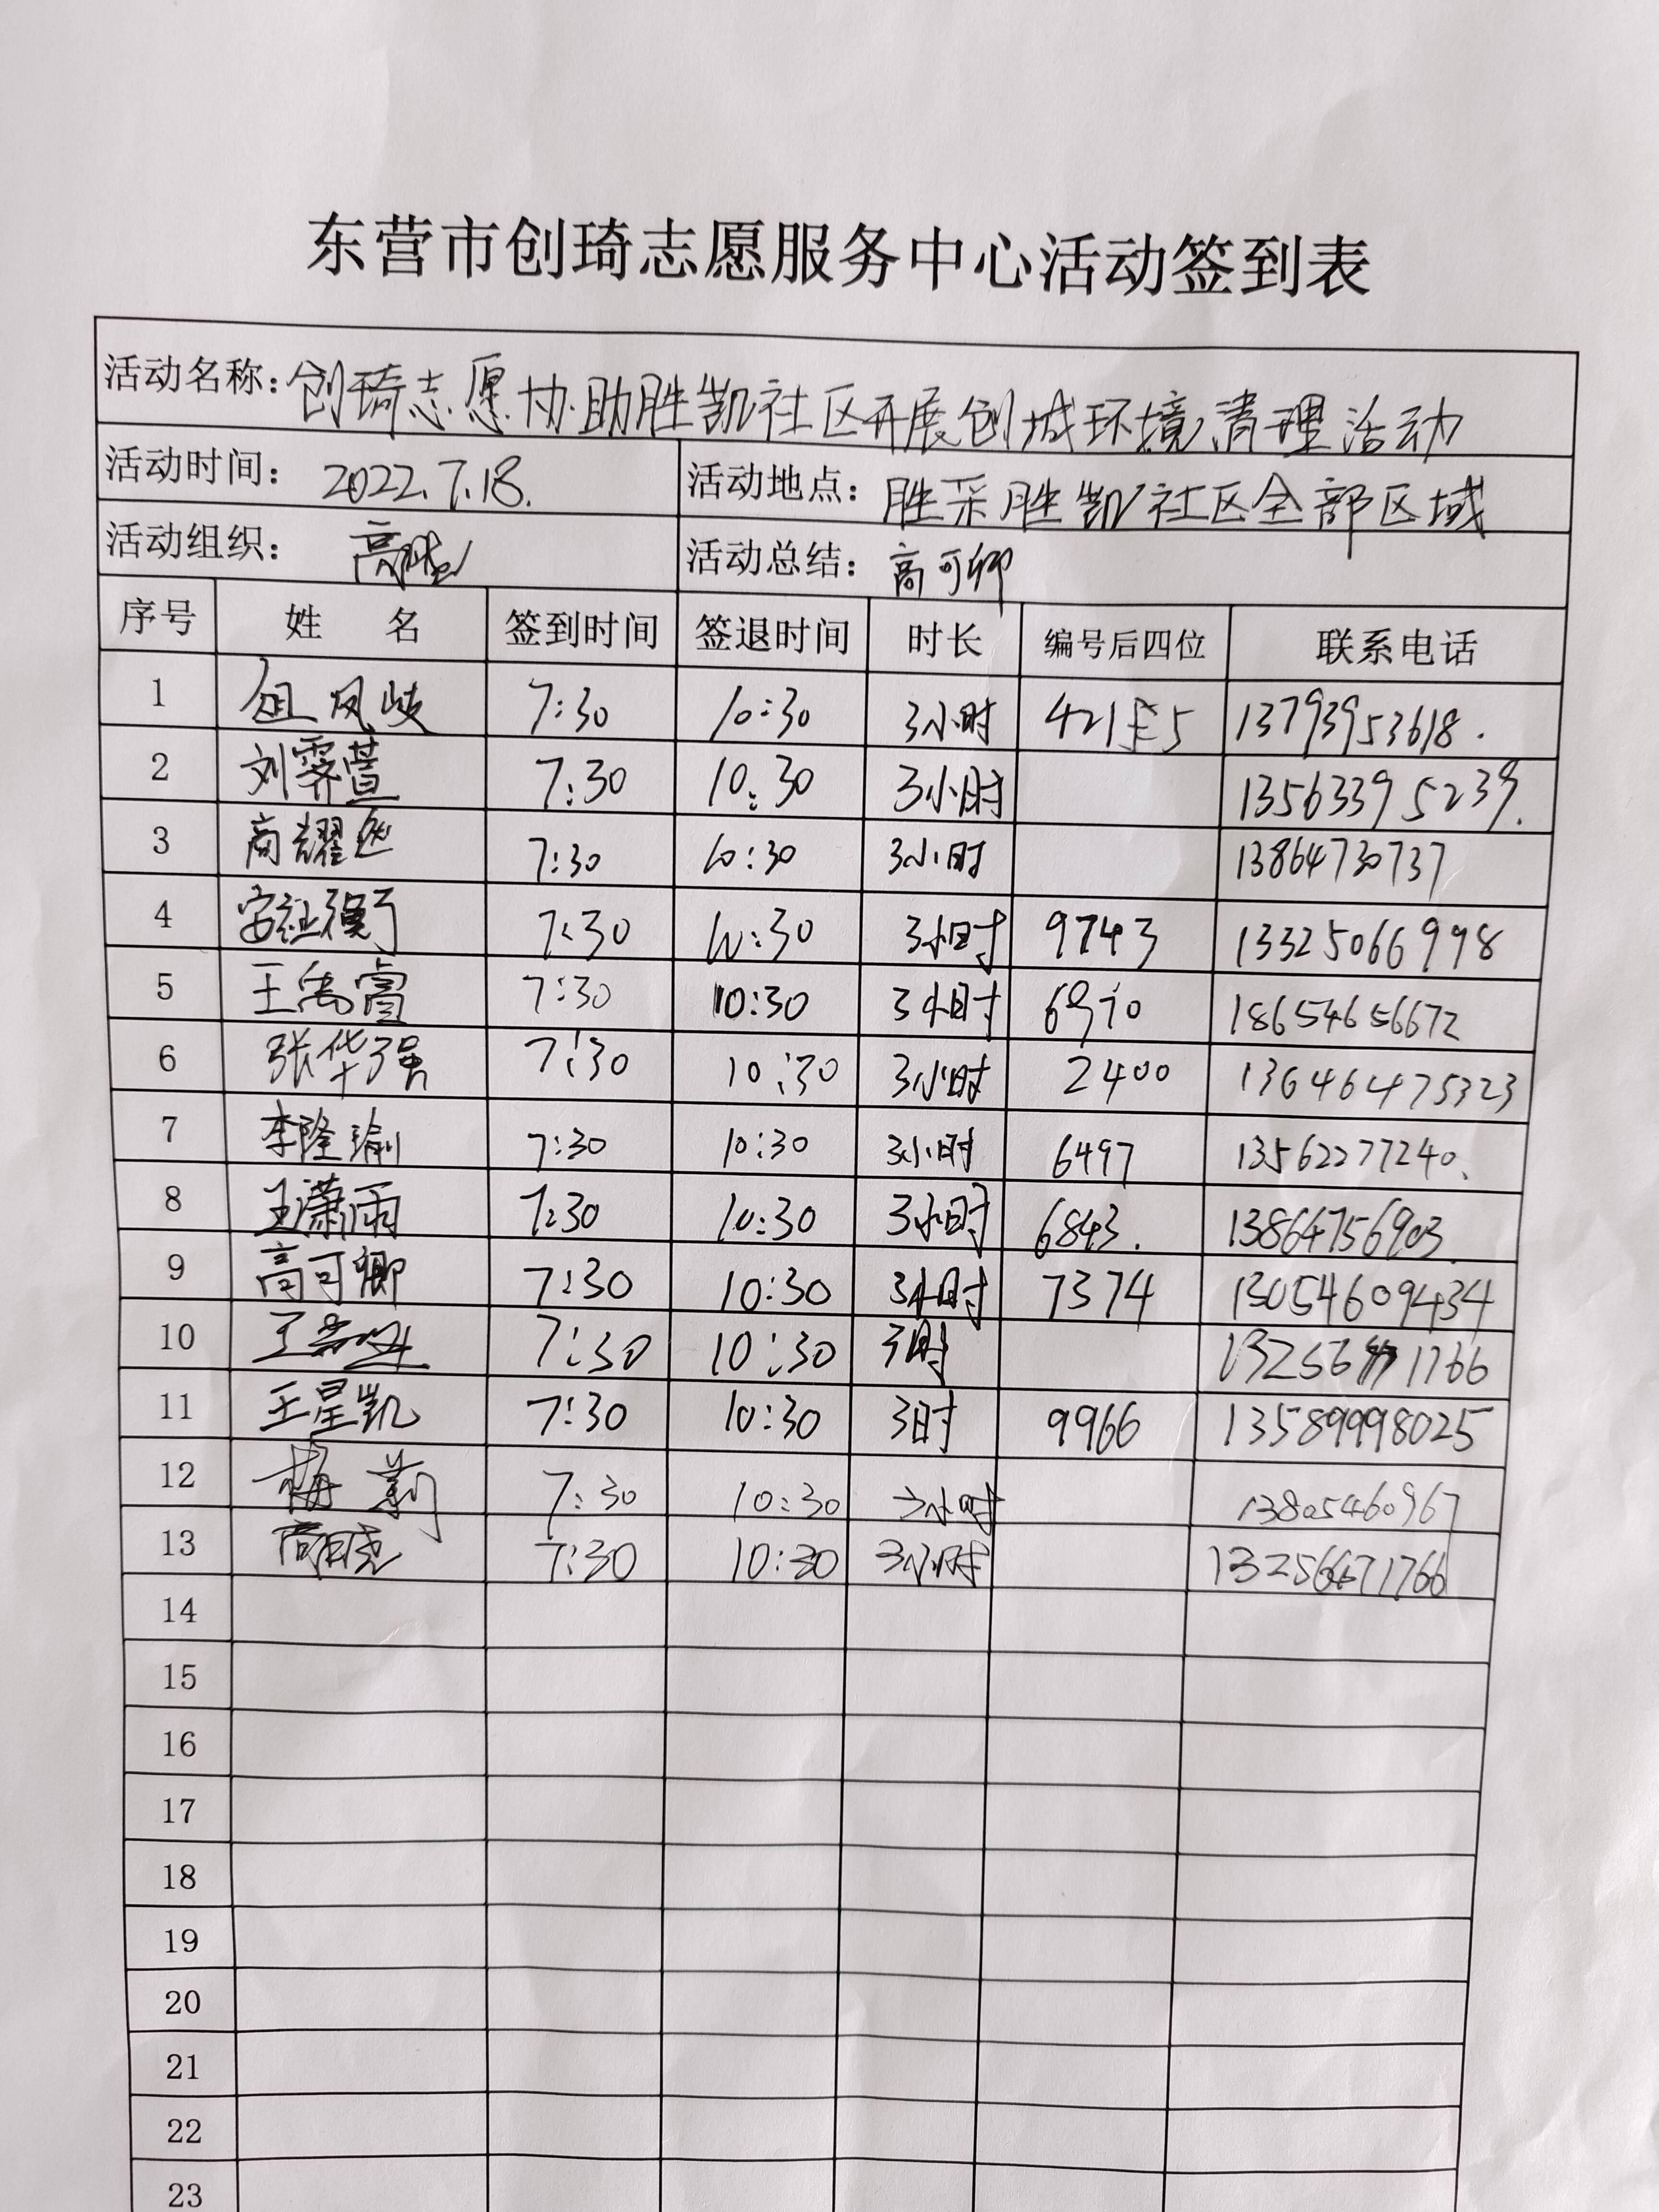 东营市创琦志愿服务中心活动签到表
活动名称：创琦志愿协助胜凯社区开展创城环境清理活动
活动时间： 2022.7.18. 活动地点： 胜采胜凯社区全部区域
活动组织： 高 活动总结： 高可卿
序号 姓 名 签到时间 签退时间 时长 编号后四位 联系电话
1 凤岐 7:30 10:30 3小时 13793953618.
2 刘霁萱 7:30 10:30 3小时 13563395239.
3 高耀 7:30 10:30 3小时 13864730737
4 安 7:30 10:30 3小时 9743 13325066998
5 王禹睿 7:30 10:30 3小时 18654656672
6 张华强 7:30 10:30 3小时 2400 136464475323
7 李隆瑜 7:30 10:30 3小时 6497 13562277240.
8 王潇雨 7:30 10:30 3小时 6843. 13864756903
9 高可卿 7:30 10:30 3小时 7374 13054609434
10 7:30 10:30 3时
11 王星凯 7:30 10:30 3时 9966 13589998025
12 梅莉 7:30 10:30 3小时 13805460967
13 高 7:30 10:30 3小时
14
15
16
17
18
19
20
21
22
23